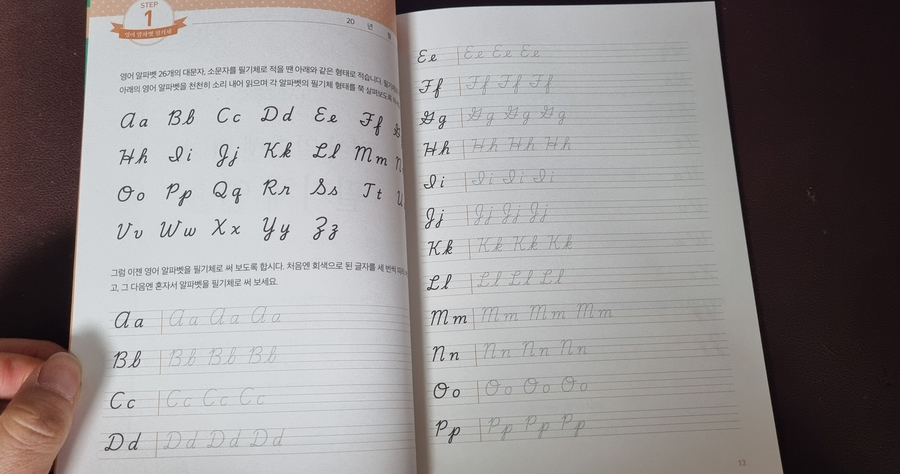 STEP
1
영어 알파벳 필기체
20 년 월
영어 알파벳 26개의 대문자, 소문자를 필기체로 적을 땐 아래와 같은 형태로 적습니다.
아래의 영어 알파벳을 천천히 소리 내어 읽으며 각 알파벳의 필기체 형태를 쭉 살펴보도록
Aa Bb Cc Dd Ee Ff
Hh Ii Jj Kk Ll Mm
Oo Pp Qq Rr Ss Tt
Vv Ww Xx Yy Zz
그럼 이젠 영어 알파벳을 필기체로 써 보도록 합시다. 처음엔 회색으로 된 글자를 세 번씩
고, 그 다음엔 혼자서 알파벳을 필기체로 써 보세요.
Aa Aa Aa Aa
Bb Bb Bb Bb
Cc Cc Cc Cc
Dd Dd Dd Dd
Ee Ee Ee Ee
Ff Ff Ff Ff
Gg Gg Gg Gg
Hh Hh Hh Hh
Ii Ii Ii Ii
Jj Jj Jj Jj
Kk Kk Kk Kk
Ll Ll Ll Ll
Mm Mm Mm Mm
Nn Nn Nn Nn
Oo Oo Oo Oo
Pp Pp Pp Pp
13